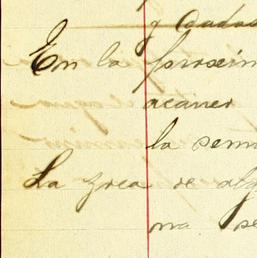 y Ciudad
En la proxim
acaner
la sema
La zrea se alg
na se